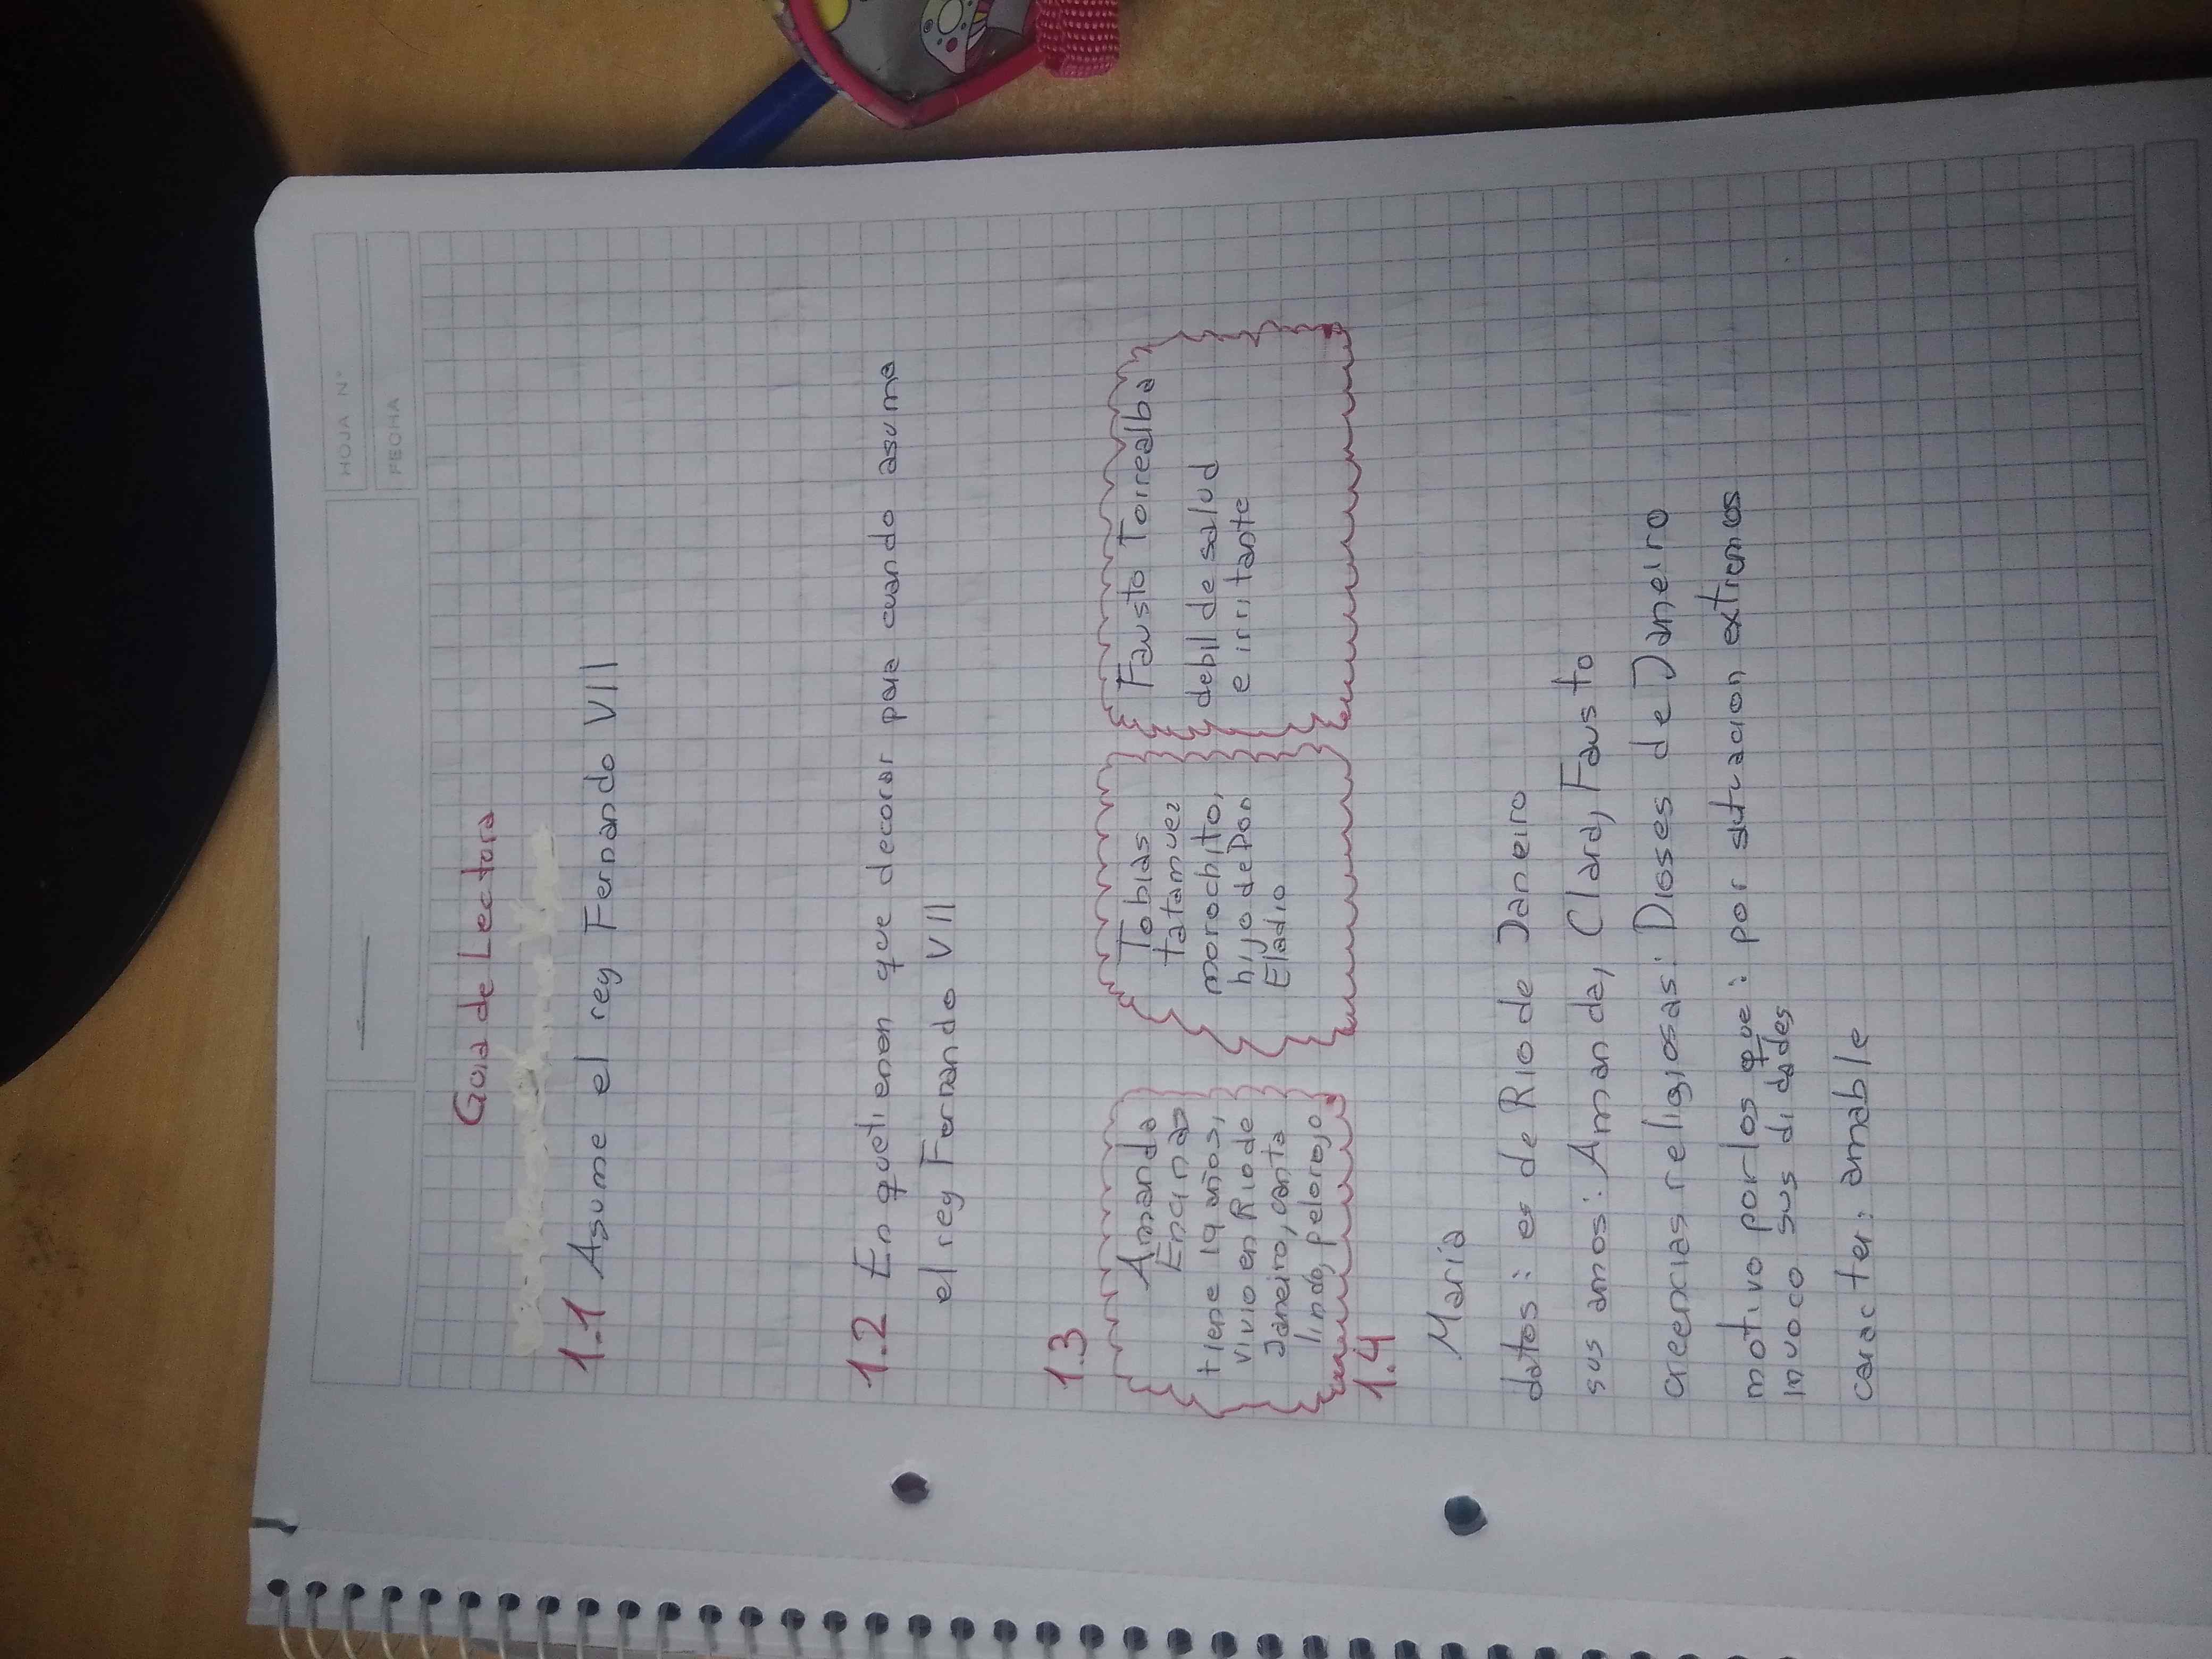 HOJA N°
FECHA
Guia de Lectora
1.1 Asume el rey Fernando VII
1.2 En que tienen que decorar para cuando asuma
el rey Fernando VII
1.3
Amanda
Encinas
tiene 19 años,
vivio en Rio de
Janeiro, canta
lindo, pelorojo
Tobias
tatamuez
morochito,
hijo de Don
Eladio
Fausto Torrealba
debil de salud
e irritante
1.4
Maria
datos: es de Rio de Janeiro
sus amos: Amanda, Clara, Fausto
creencias religiosas: Dioses de Janeiro
motivo por los que: por situacion extremos
invoco sus di dades
caracter: amable